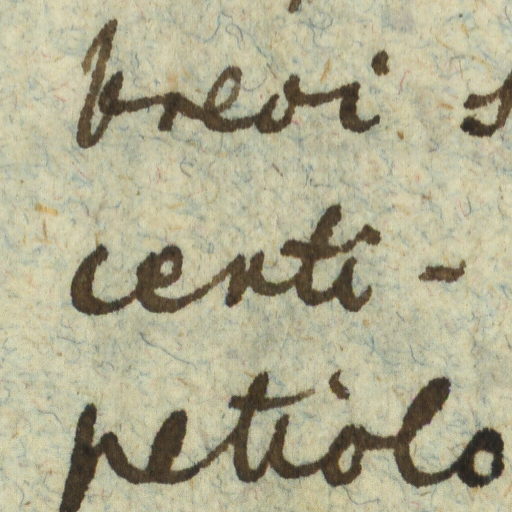 brevi
centi-
petiolo